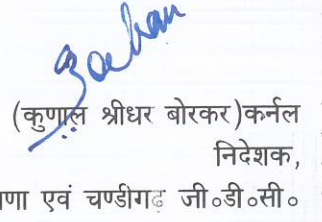 (कुणाल श्रीधर बोरकर)कर्नल
निदेशक,
एवं चण्डीगढ़ जी०डी०सी०